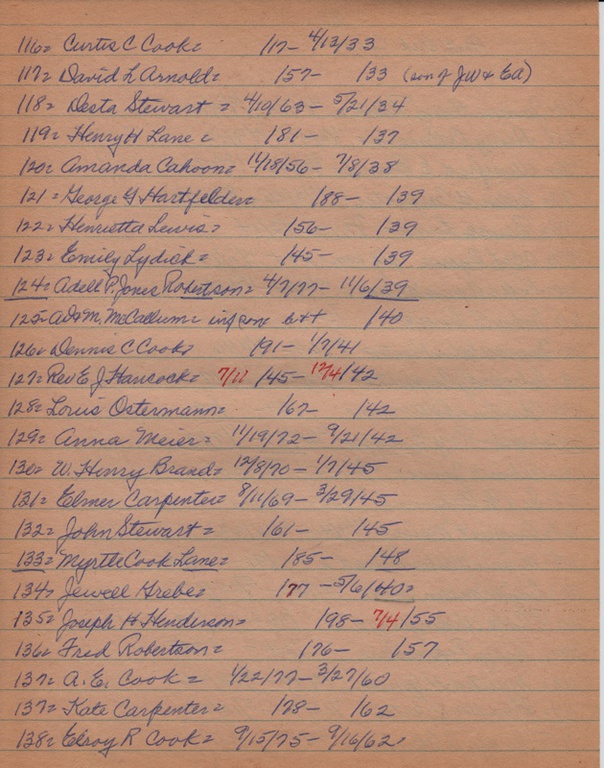 116= Curtis C Cook= /17- 4/13/33
117= David L Arnold= 157- /33 (son of JW & EA)
118= Desta Stewart = 4/19/63 - 5/21/34
119= Henry H Lane = /81- /37
120= Amanda Cahoon= 11/18/56 - 7/8/38
121= George G Hartfelder= /88- /39
122= Henrietta Lewis= /56- /39
123= Emily Lydick= /45- /39
124= Adell P. Jones Robertson= 4/7/77- 11/6/39
125= M. McCallum= inf son /40
126= Dennis C Cook= /91- 1/7/41
127= Rev E J Hancock= 7/11 /45- 12/4/42
128= Louis Ostermann= /67- /42
129= Anna Meier= 11/19/72 - 9/21/42
130= W. Henry Brand= 12/8/70 - 1/7/45
131= Elmer Carpenter= 8/11/69 - 3/29/45
132= John Stewart= /61- /45
133= Myrtle Cook Lane= /85- /48
134= Jewell Grebe= /77 -5/6/40=
135= Joseph H Henderson= /98- 7/4/55
136= Fred Robertson= /76- /57
137= A. E. Cook = 1/22/77- 3/27/60
137= Kate Carpenter= /78- /62
138= Elroy R Cook= 9/15/75 - 9/16/62=